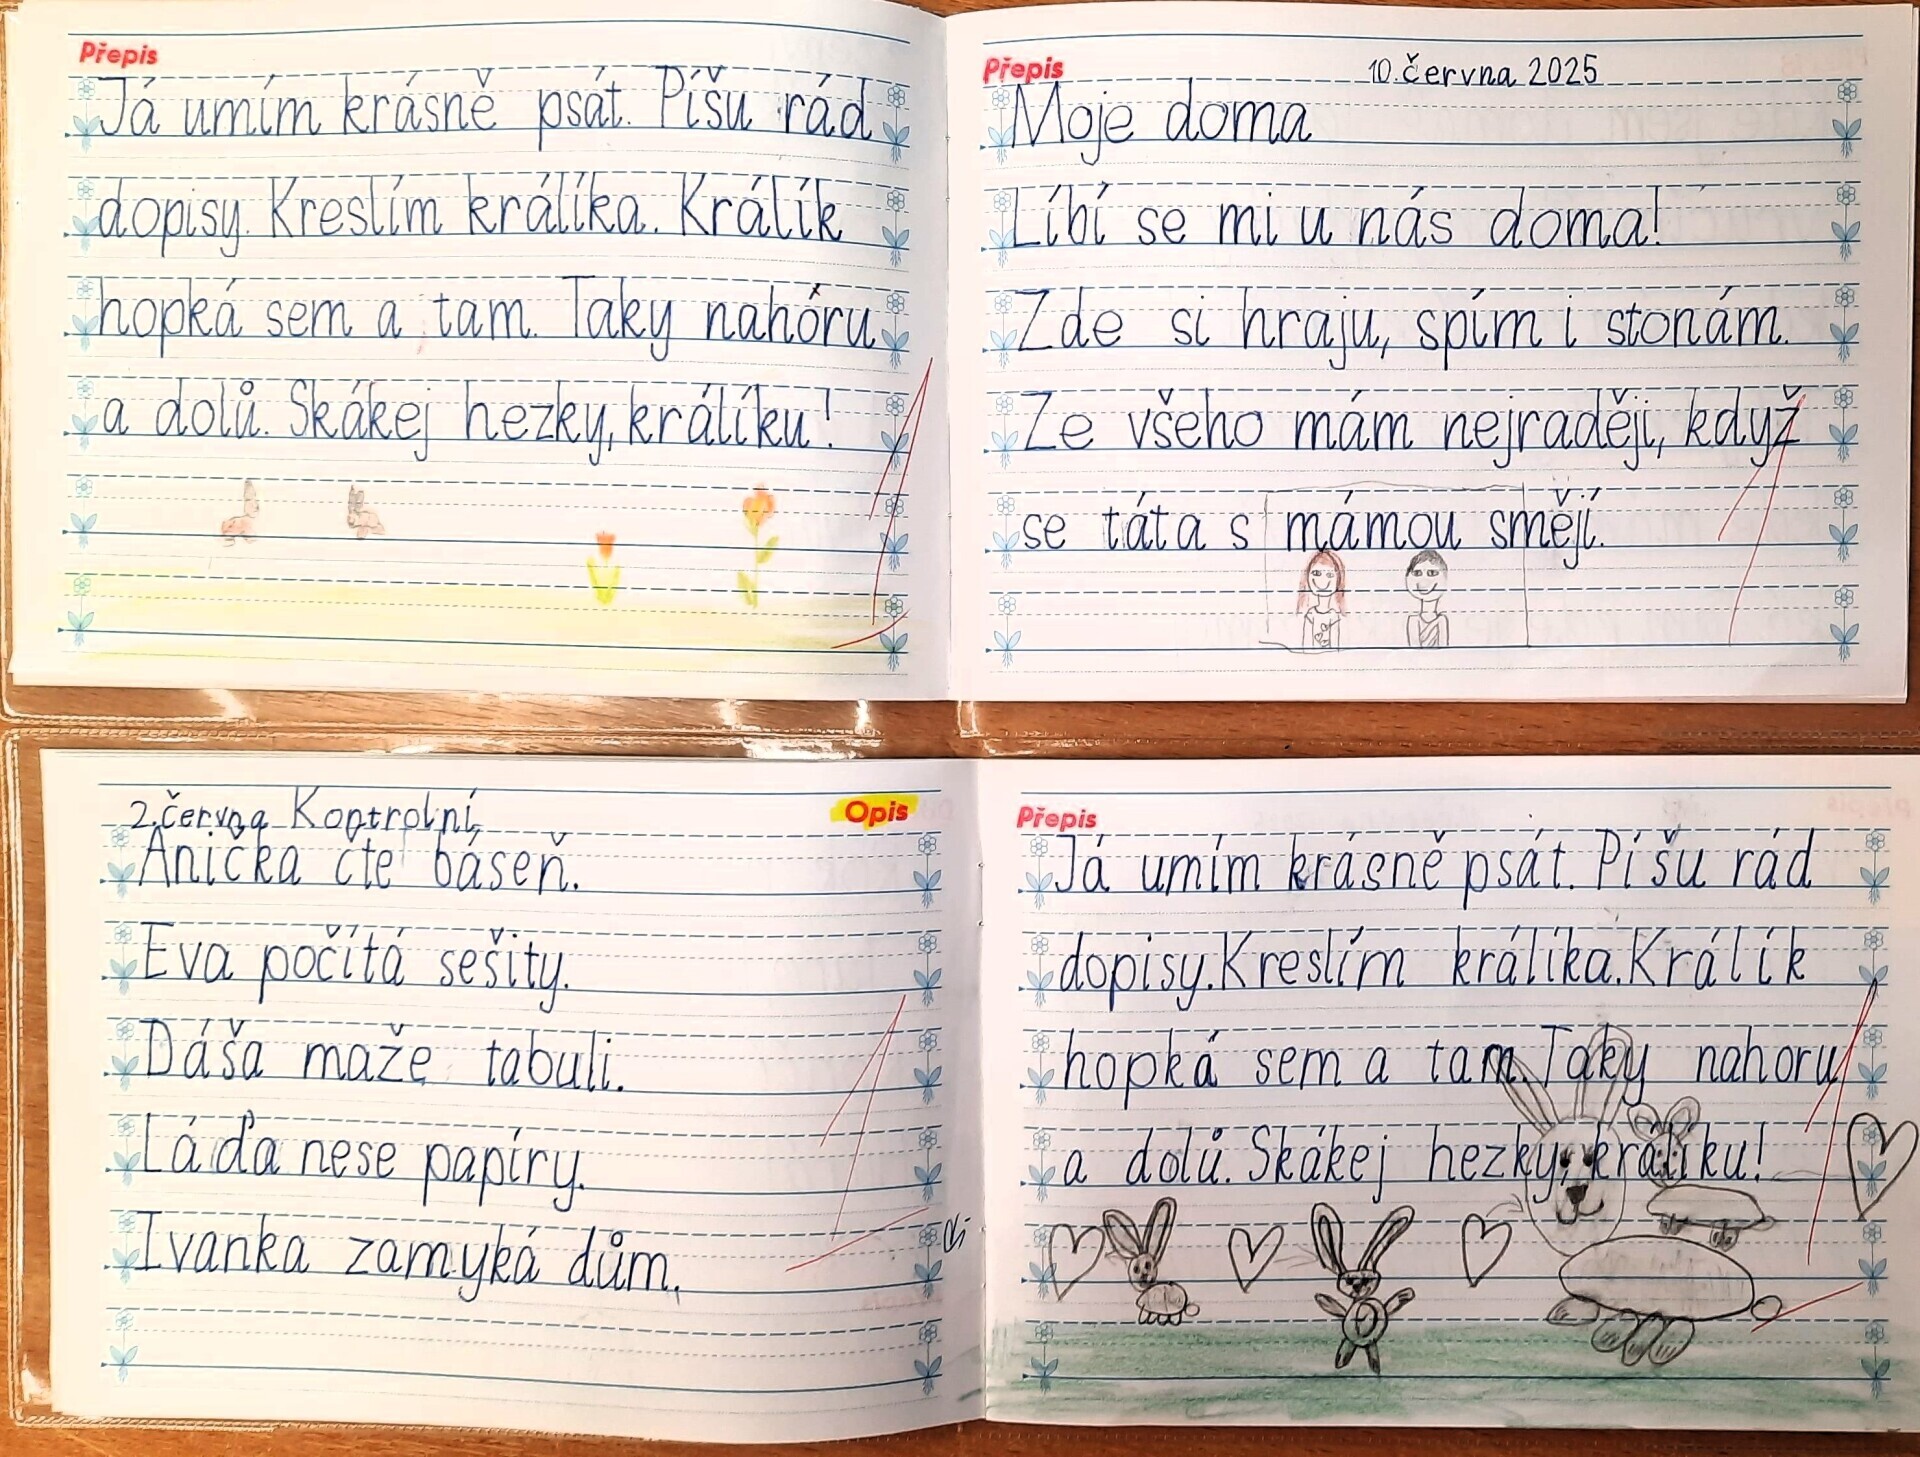 Přepis
Já umím krásně psát. Píšu rád
dopisy. Kreslím králíka. Králík
hopká sem a tam. Taky nahóru
a dolů. Skákej hezky, králíku!
Přepis
10. června 2025
Moje doma
Líbí se mi u nás doma!
Zde si hraju, spím i stonám.
Ze všeho mám nejraději, když
se táta s mámou smějí.
2. června Kontrolní
Opis
Anička čte báseň.
Eva počítá sešity.
Dáša maže tabuli.
Láďa nese papíry.
Ivanka zamyká dům.
Přepis
Já umím krásně psát. Píšu rád
dopisy. Kreslím králíka. Králík
hopká sem a tam. Taky nahoru
a dolů. Skákej hezky, králíku!